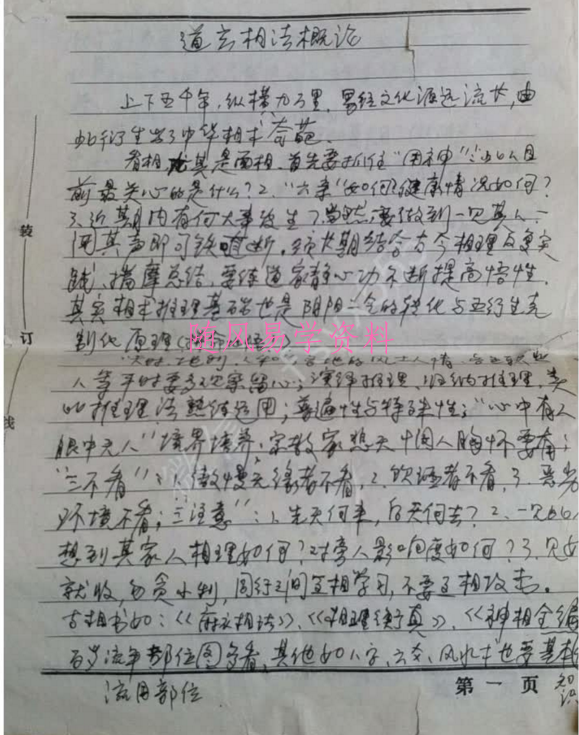 道玄相法概论
上下五千年,纵横九万里,易经文化源远流长,由
此衍生出了中华相术奇葩.
看相尤其是面相,首先要抓住"用神":1.此人目
前最关心的是什么?2."六亲"如何?健康情况如何?
3.近期内有何大事发生?当然要做到一见其人一
闻其声即可铁口直断,须长期结合古今相理反复实
践,揣摩总结,要练道家静心功不断提高悟性.
其实相术推理基础也是阴阳二气的转化与五行生克
制化原理
随风易学资料
人等平时要多观察留心;演绎推理、归纳推理、类
比推理法熟练运用;普遍性与特殊性;"心中有人
眼中无人"境界培养,宗教家慈天悯人胸怀要有;
"三不看":1.傲慢无缘者不看,2.饮酒者不看,3.恶劣
环境不看;"三注意":1.先天何来,后天何去?2.一见此人
想到其家人相理如何?对旁人影响度如何?3.见好
就收,勿贪小利,同行之间互相学习,不要互相攻击.
古相书如:《麻衣相法》、《相理衡真》、《神相全编
百岁流年部位图多看,其他如八字、六爻、风水术也要基本
知识
流用部位
第一页
装
订
线